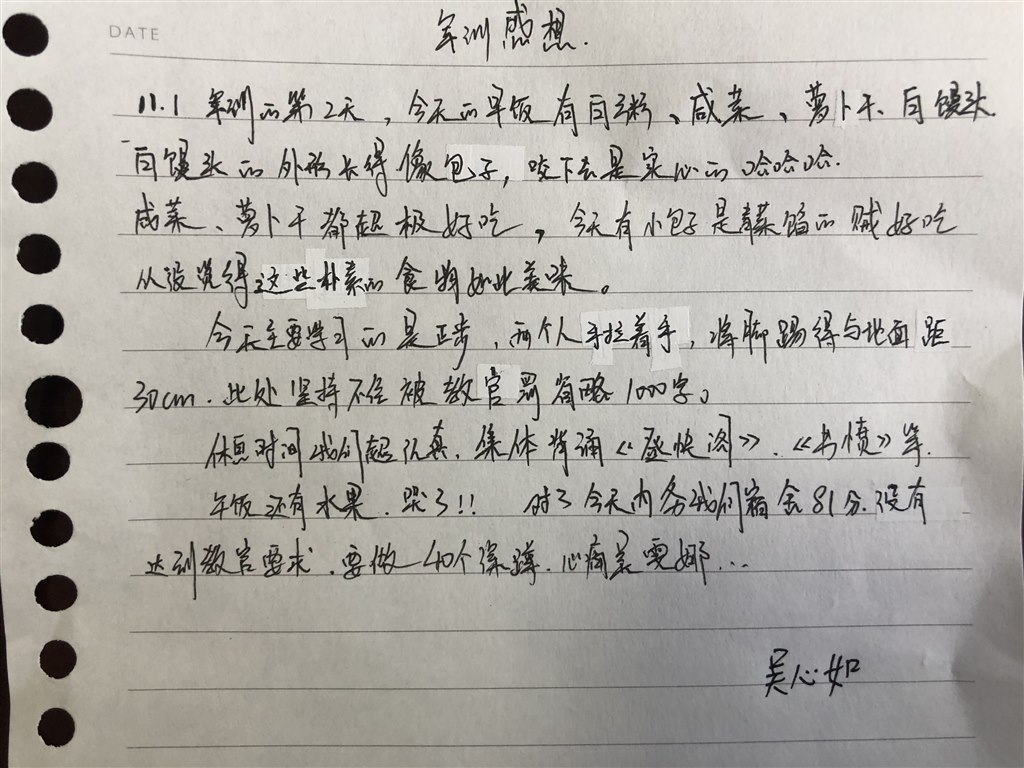 DATE
军训感想.
11.1 军训的第2天，今天的早饭有白粥、咸菜、萝卜干、白馒头.
白馒头的外形长得像包子，咬下去是实心的哈哈哈.
咸菜、萝卜干都超极好吃，今天有小包子是青菜馅的贼好吃
从没觉得这些朴素的食物如此美味。
今天主要学习的是正步，两个人手拉着手，将脚踢得与地面距
30cm.此处坚持不住被教官罚省略1000字。
休息时间我们超认真，集体背诵《登快阁》、《书愤》等.
午饭还有水果.哭了!! 对了今天内务我们宿舍81分.没有
达到教官要求.要做40个深蹲.心痛景雯娜...
吴心如